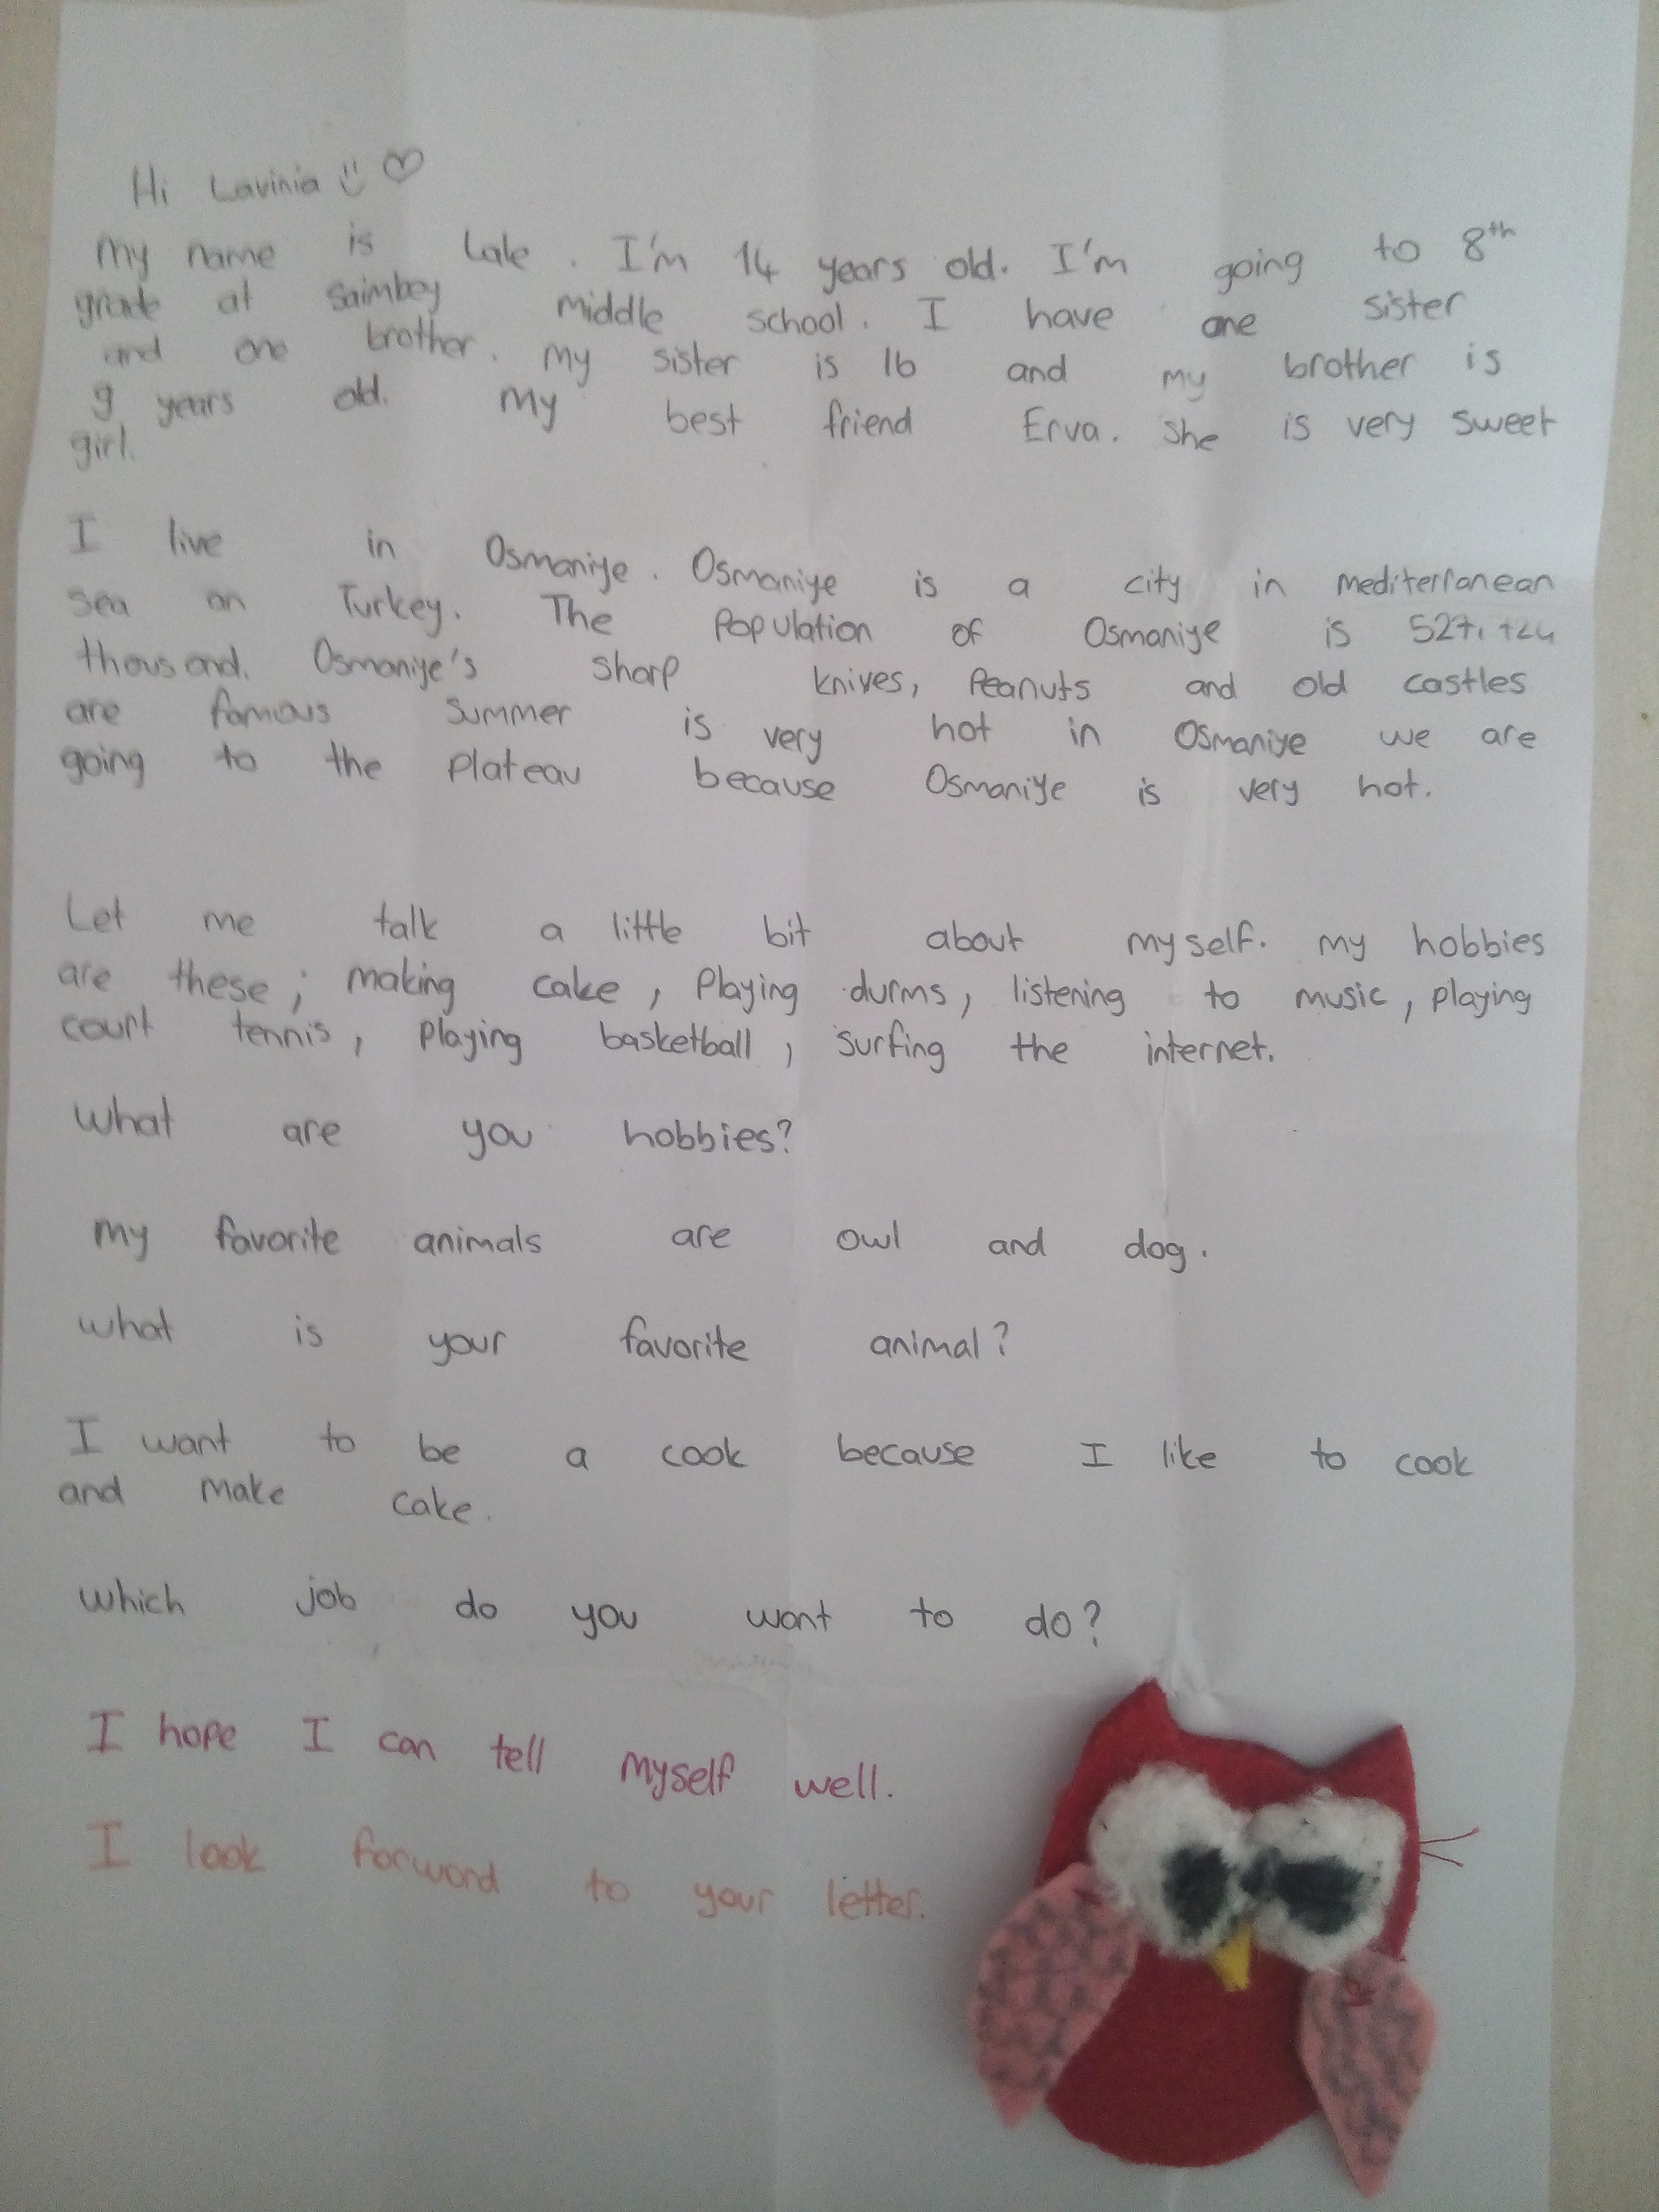 Hi Lavinia
My name is Lale . I'm 14 years old. I'm going to 8th
grade at saimbey middle school. I have one sister
and one brother. My sister is 16 and my brother is
9 years old. My best friend Erva. She is very sweet
girl.
I live in Osmaniye. Osmaniye is a city in mediterranean
sea on Turkey. The Population of Osmaniye is
thousand. Osmaniye's sharp knives, Peanuts and old castles
are famous summer is very hot in Osmaniye we are
going to the plateau because Osmaniye is very hot.
Let me talk a little bit about myself. my hobbies
are these; making cake, Playing durms, listening to music, playing
court tennis, playing basketball, surfing the internet.
What are you hobbies?
My favorite animals are owl and dog.
what is your favorite animal?
I want to be a cook because I like to cook
and make cake.
which job do you want to do?
I hope I can tell myself well.
I look forword to your letter.